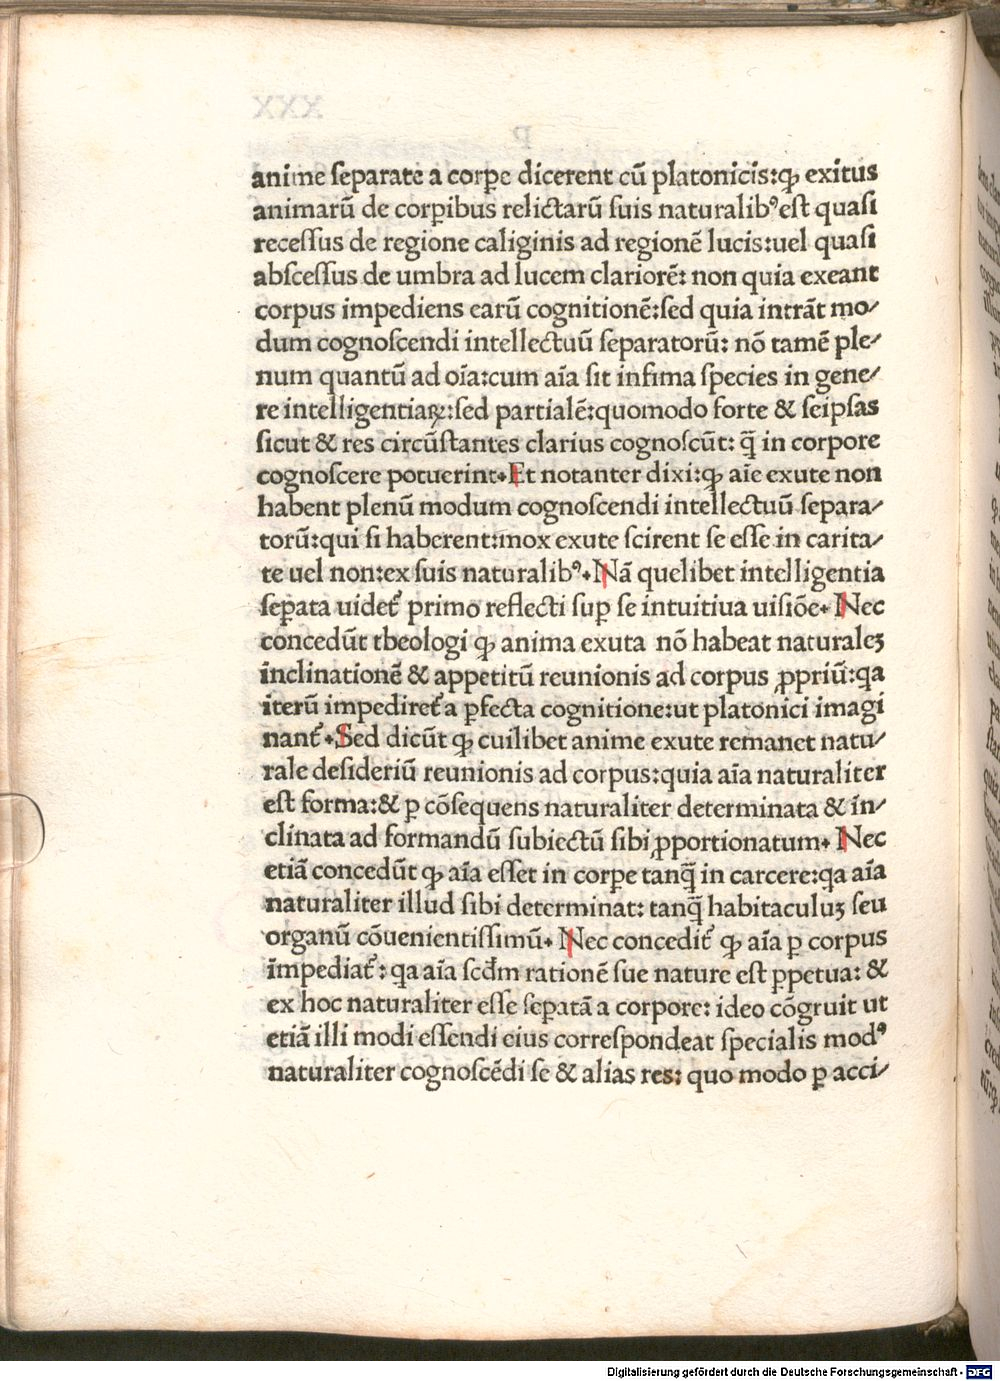 anime ſeparate a corꝑe dicerent cū platonicis:ꝙ exitus
animarū de corꝑibus relictarū ſuis naturalibꝰ eſt quaſi
receſſus de regione caliginis ad regionē lucis:uel quaſi
abſceſſus de umbra ad lucem clariorē: non quia exeant
corpus impediens earū cognitionē:ſed quia intrāt mo⸗
dum cognoſcendi intellectuū ſeparatorū: nō tamē ple⸗
num quantū ad oīa:cum aīa ſit infima ſpecies in gene⸗
re intelligentiaꝝ:ſed partialē:quomodo forte & ſeipſas
ſicut & res circūſtantes clarius cognoſcūt: q̄ in corpore
cognoſcere potuerint. Et notanter dixi:ꝙ aīe exute non
habent plenū modum cognoſcendi intellectuū ſepara⸗
torū:qui ſi haberent:mox exute ſcirent ſe eſſe in carita⸗
te uel non:ex ſuis naturalibꝰ. Nā quelibet intelligentia
ſeꝑata uidet᷑ primo reflecti ſuꝑ ſe intuitiua uiſiōe. Nec
concedūt tbeologi ꝙ anima exuta nō habeat naturaleꝫ
inclinationē & appetitū reunionis ad corpus ꝓpriū:qa
iterū impediret᷑ a ꝑfecta cognitione:ut platonici imagi
nant᷑. Sed dicūt ꝙ cuilibet anime exute remanet natu⸗
rale deſideriū reunionis ad corpus:quia aīa naturaliter
eſt forma:& ꝑ cōſequens naturaliter determinata & in⸗
clinata ad formandū ſubiectū ſibi ꝓportionatum. Nec
etiā concedūt ꝙ aīa eſſet in corꝑe tanq̄ in carcere:qa aīa
naturaliter illud ſibi determinat: tanq̄ habitaculuꝫ ſeu
organū cōuenientiſſimū. Nec concedit᷑ ꝙ aīa ꝑ corpus
impediat᷑: qa aīa ſcd̄m rationē ſue nature eſt ꝑpetua: &
ex hoc naturaliter eſſe ſeꝑatā a corpore: ideo cōgruit ut
etiā illi modi eſſendi eius correſpondeat ſpecialis modꝰ
naturaliter cognoſcēdi ſe & alias res: quo modo ꝑ acci⸗
Digitalisierung gefördert durch die Deutsche Forschungsgemeinschaft - DFG